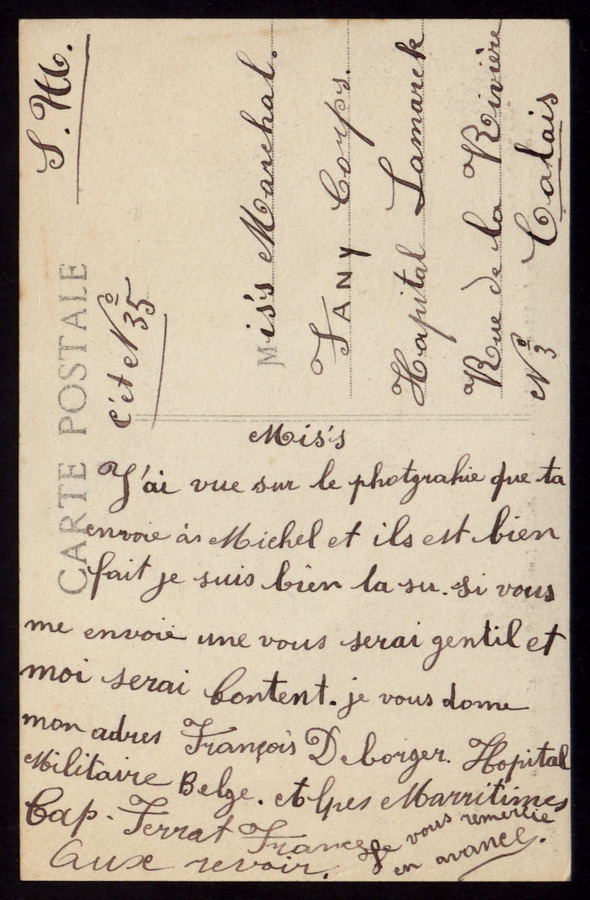 S. M.
CARTE POSTALE
C'ét N° 35
Mis's Marechal.
FANY Corps.
Hopital Lamarck
Rue de la Rivière
N° 3 Calais
Mis's
J'ai vue sur le photgrahie que ta
envoie às Michel et ils est bien
fait je suis bien la su. si vous
me envoie une vous serai gentil et
moi serai Content. je vous donne
mon adres François Deborger. Hopital
Militaire Belge. Alpes Marritimes
Cap. Ferrat France
Aux revoir. Je vous remercie
en avance.